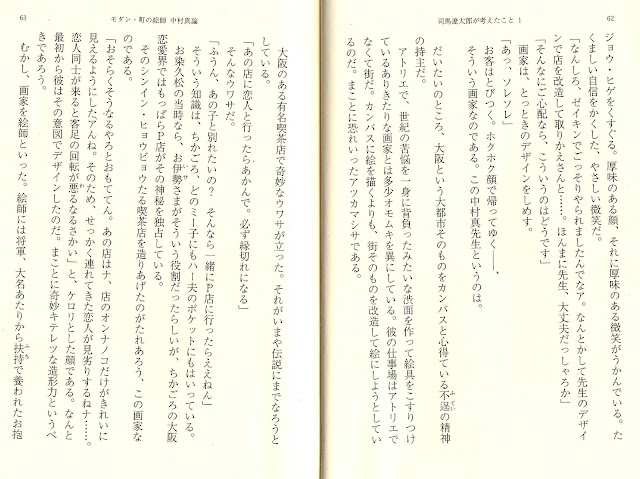 62
司馬遼太郎が考えたこと 1
ジョウ・ヒゲをくすぐる。厚味のある顔、それに厚味のある微笑がうかんでいる。た
くましい自信をかくした、やさしい微笑だ。
「なんしろ、ゼイキンでごっそりやられましたんでなア。なんとかして先生のデザイ
ンで店を改造して取りかえさんと……。ほんまに先生、大丈夫だっしゃろか」
「そんなにご心配なら、こういうのはどうです」
画家は、とっときのデザインをしめす。
「あっ、ソレソレ」
お客はとびつく。ホクホク顔で帰ってゆく――、
そういう画家なのである。この中村真先生というのは。
だいたいのところ、大阪という大都市そのものをカンバスと心得ている不逞の精神
ふてい
の持主だ。
アトリエで、世紀の苦悩を一身に背負ったみたいな渋面を作って絵具をこすりつけ
ているありきたりな画家とは多少オモムキを異にしている。彼の仕事場はアトリエで
なくて街だ。カンバスに絵を描くよりも、街そのものを改造して絵にしようとしてい
るのだ。まことに恐れいったアツカマシサである。
63
モダン・町の絵師 中村真論
大阪のある有名喫茶店で奇妙なウワサが立った。それがいまや伝説にまでなろうと
している。
「あの店に恋人と行ったらあかんで。必ず縁切れになる」
そんなウワサだ。
「ふうん、あの子と別れたいの？ そんなら一緒にP店に行ったらええねん」
そういう知識は、ちかごろ、どのミー子にもハー夫のポケットにもはいっている。
お染久松の当時なら、お伊勢さまがそういう役割だったらしいが、ちかごろの大阪
いせ
恋愛界ではもっぱらP店がその神秘を独占している。
そのシンイン・ヒョウビョウたる喫茶店を造りあげたのがたれあろう、この画家な
のである。
「おそらくそうなるやろとおもてん。あの店はナ、店のオンナノコだけがきれいに
見えるようにしたアんね。そのため、せっかく連れてきた恋人が見劣りするねナ……。
恋人同士が来ると客足の回転が悪るなるさかい」と、ケロリとした顔である。なんと
最初から彼はその意図でデザインしたのだ。まことに奇妙キテレツな造形力というべ
きであろう。
むかし、画家を絵師といった。絵師には将軍、大名あたりから扶持で養われたお抱
ふち